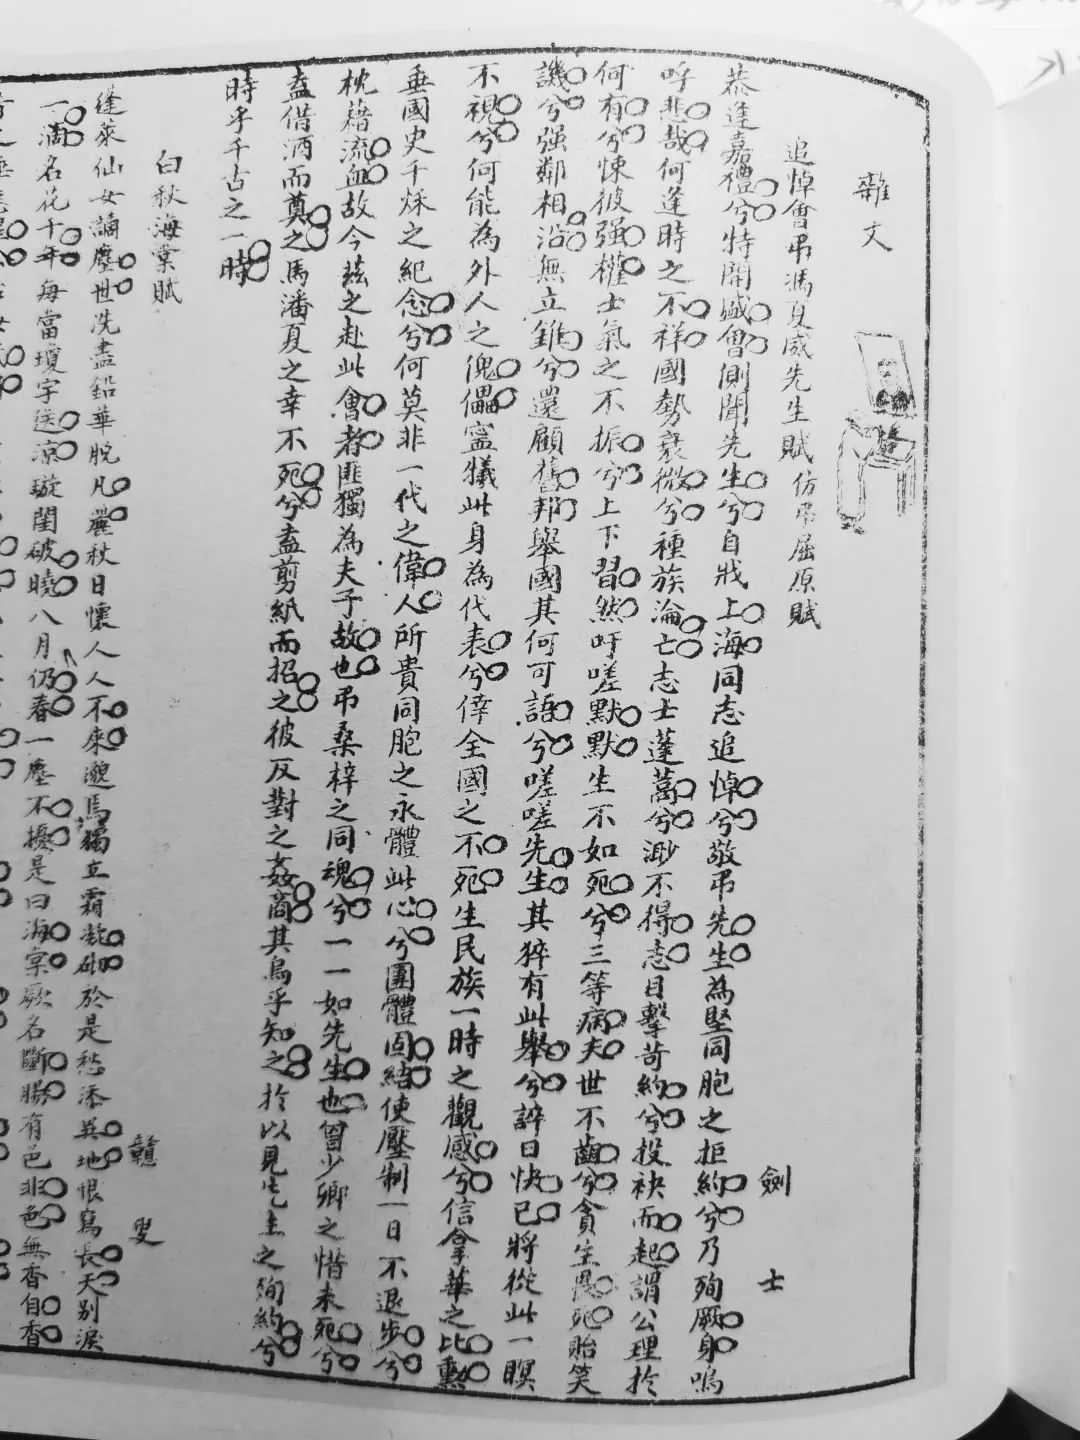 雜文
追悼會弔馮夏威先生賦仿弔屈原賦
劍士
恭逢嘉禮兮特開盛會側聞先生兮自戕上海同志追悼兮敬弔先生為堅同胞之拒約兮乃殉厥身嗚
呼悲哉何逢時之不祥國勢衰微兮種族淪亡志士蓬蒿兮渺不得志目擊苛約兮投袂而起謂公理於
何有兮悚彼强權士氣之不振兮上下習然吁嗟默默生不如死兮三等病夫世不齒兮貪生畏死貽笑
譏兮强鄰相沿無立錐兮還顧舊邦舉國其何可語兮嗟嗟先生其猝有此舉兮誶曰快已將從此一瞑
不視兮何能為外人之傀儡寍犧此身為代表兮倖全國之不死生民族一時之觀感兮信拿華之比勳
垂國史千秌之紀念兮何莫非一代之偉人所貴同胞之永體此心兮團體固結使壓制一日不退步兮
枕藉流血故今茲之赴此會者匪獨為夫子故也弔桑梓之同魂兮一一如先生也曾少卿之惜未死兮
盍借酒而奠之馬潘夏之幸不死兮盍剪紙而招之彼反對之姦商其烏乎知之於以見先生之殉約兮
時乎千古之一時
白秋海棠賦
贛叟
蓬萊仙女謫塵世洗盡鉛華脫凡麗秋日懷人人不來邈焉獨立霜凝砌於是愁添異地恨寫長天別淚
一滴名花十年每當瓊宇送凉璇閨破曉八月仍春一塵不擾是曰海棠厥名斷腸有色非色無香自香